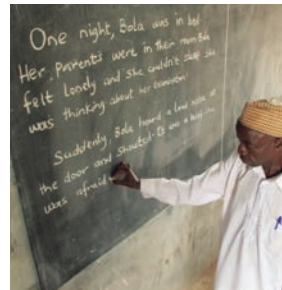 One night, Bola was in bed.
Her Parents were in their room Bola
felt lonely and she couldn't sleep she
was thinking about her examination
Suddenly, Bola heard a loud noise at
the door and shouted. It was a
was afraid